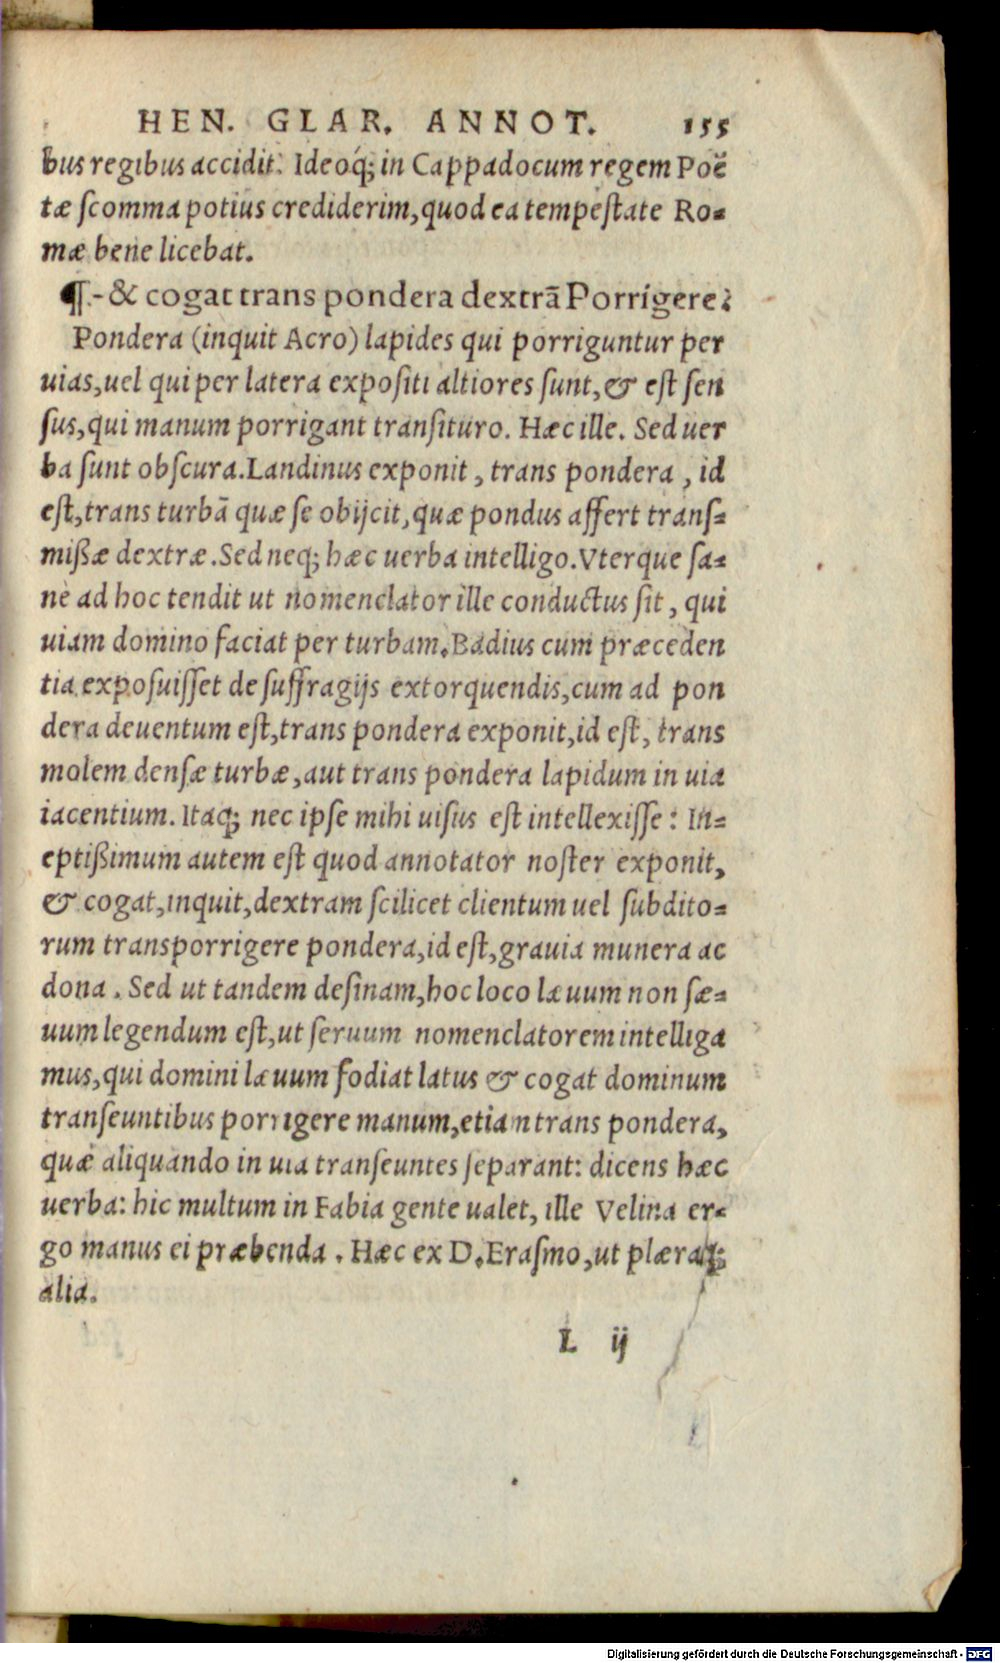 HEN. GLAR. ANNOT. 155
bus regibus accidit. Ideoq́; in Cappadocum regem Poë
tæ scomma potius crediderim, quod ea tempestate Ro=
mæ bene licebat.
¶.- & cogat trans pondera dextrā Porrígere?
Pondera (inquit Acro) lapides qui porriguntur per
uias, uel qui per latera expositi altiores sunt, & est sen
sus, qui manum porrigant transituro. Hæc ille. Sed uer
ba sunt obscura. Landinus exponit, trans pondera, id
est, trans turbā quæ se obijcit, quæ pondus affert trans=
mißæ dextræ. Sed neq; hæc uerba intelligo. Vterque sa=
nè ad hoc tendit ut nomenclator ille conductus sit, qui
uiam domino faciat per turbam. Badius cum præceden
tia exposuisset de suffragijs extorquendis, cum ad pon
dera deuentum est, trans pondera exponit, id est, trans
molem densæ turbæ, aut trans pondera lapidum in uia
iacentium. Itaq; nec ipse mihi uisus est intellexisse: In=
eptißimum autem est quod annotator noster exponit,
& cogat, inquit, dextram scilicet clientum uel subdito=
rum transporrigere pondera, id est, grauia munera ac
dona. Sed ut tandem desinam, hoc loco læuum non sæ=
uum legendum est, ut seruum nomenclatorem intelliga
mus, qui domini læuum fodiat latus & cogat dominum
transeuntibus porrigere manum, etiam trans pondera,
quæ aliquando in uia transeuntes separant: dicens hæc
uerba: hic multum in Fabia gente ualet, ille Velina er=
go manus ei præbenda. Hæc ex D. Erasmo, ut pleraq;
alia.
L ij
Digitalisierung gefördert durch die Deutsche Forschungsgemeinschaft - DFG